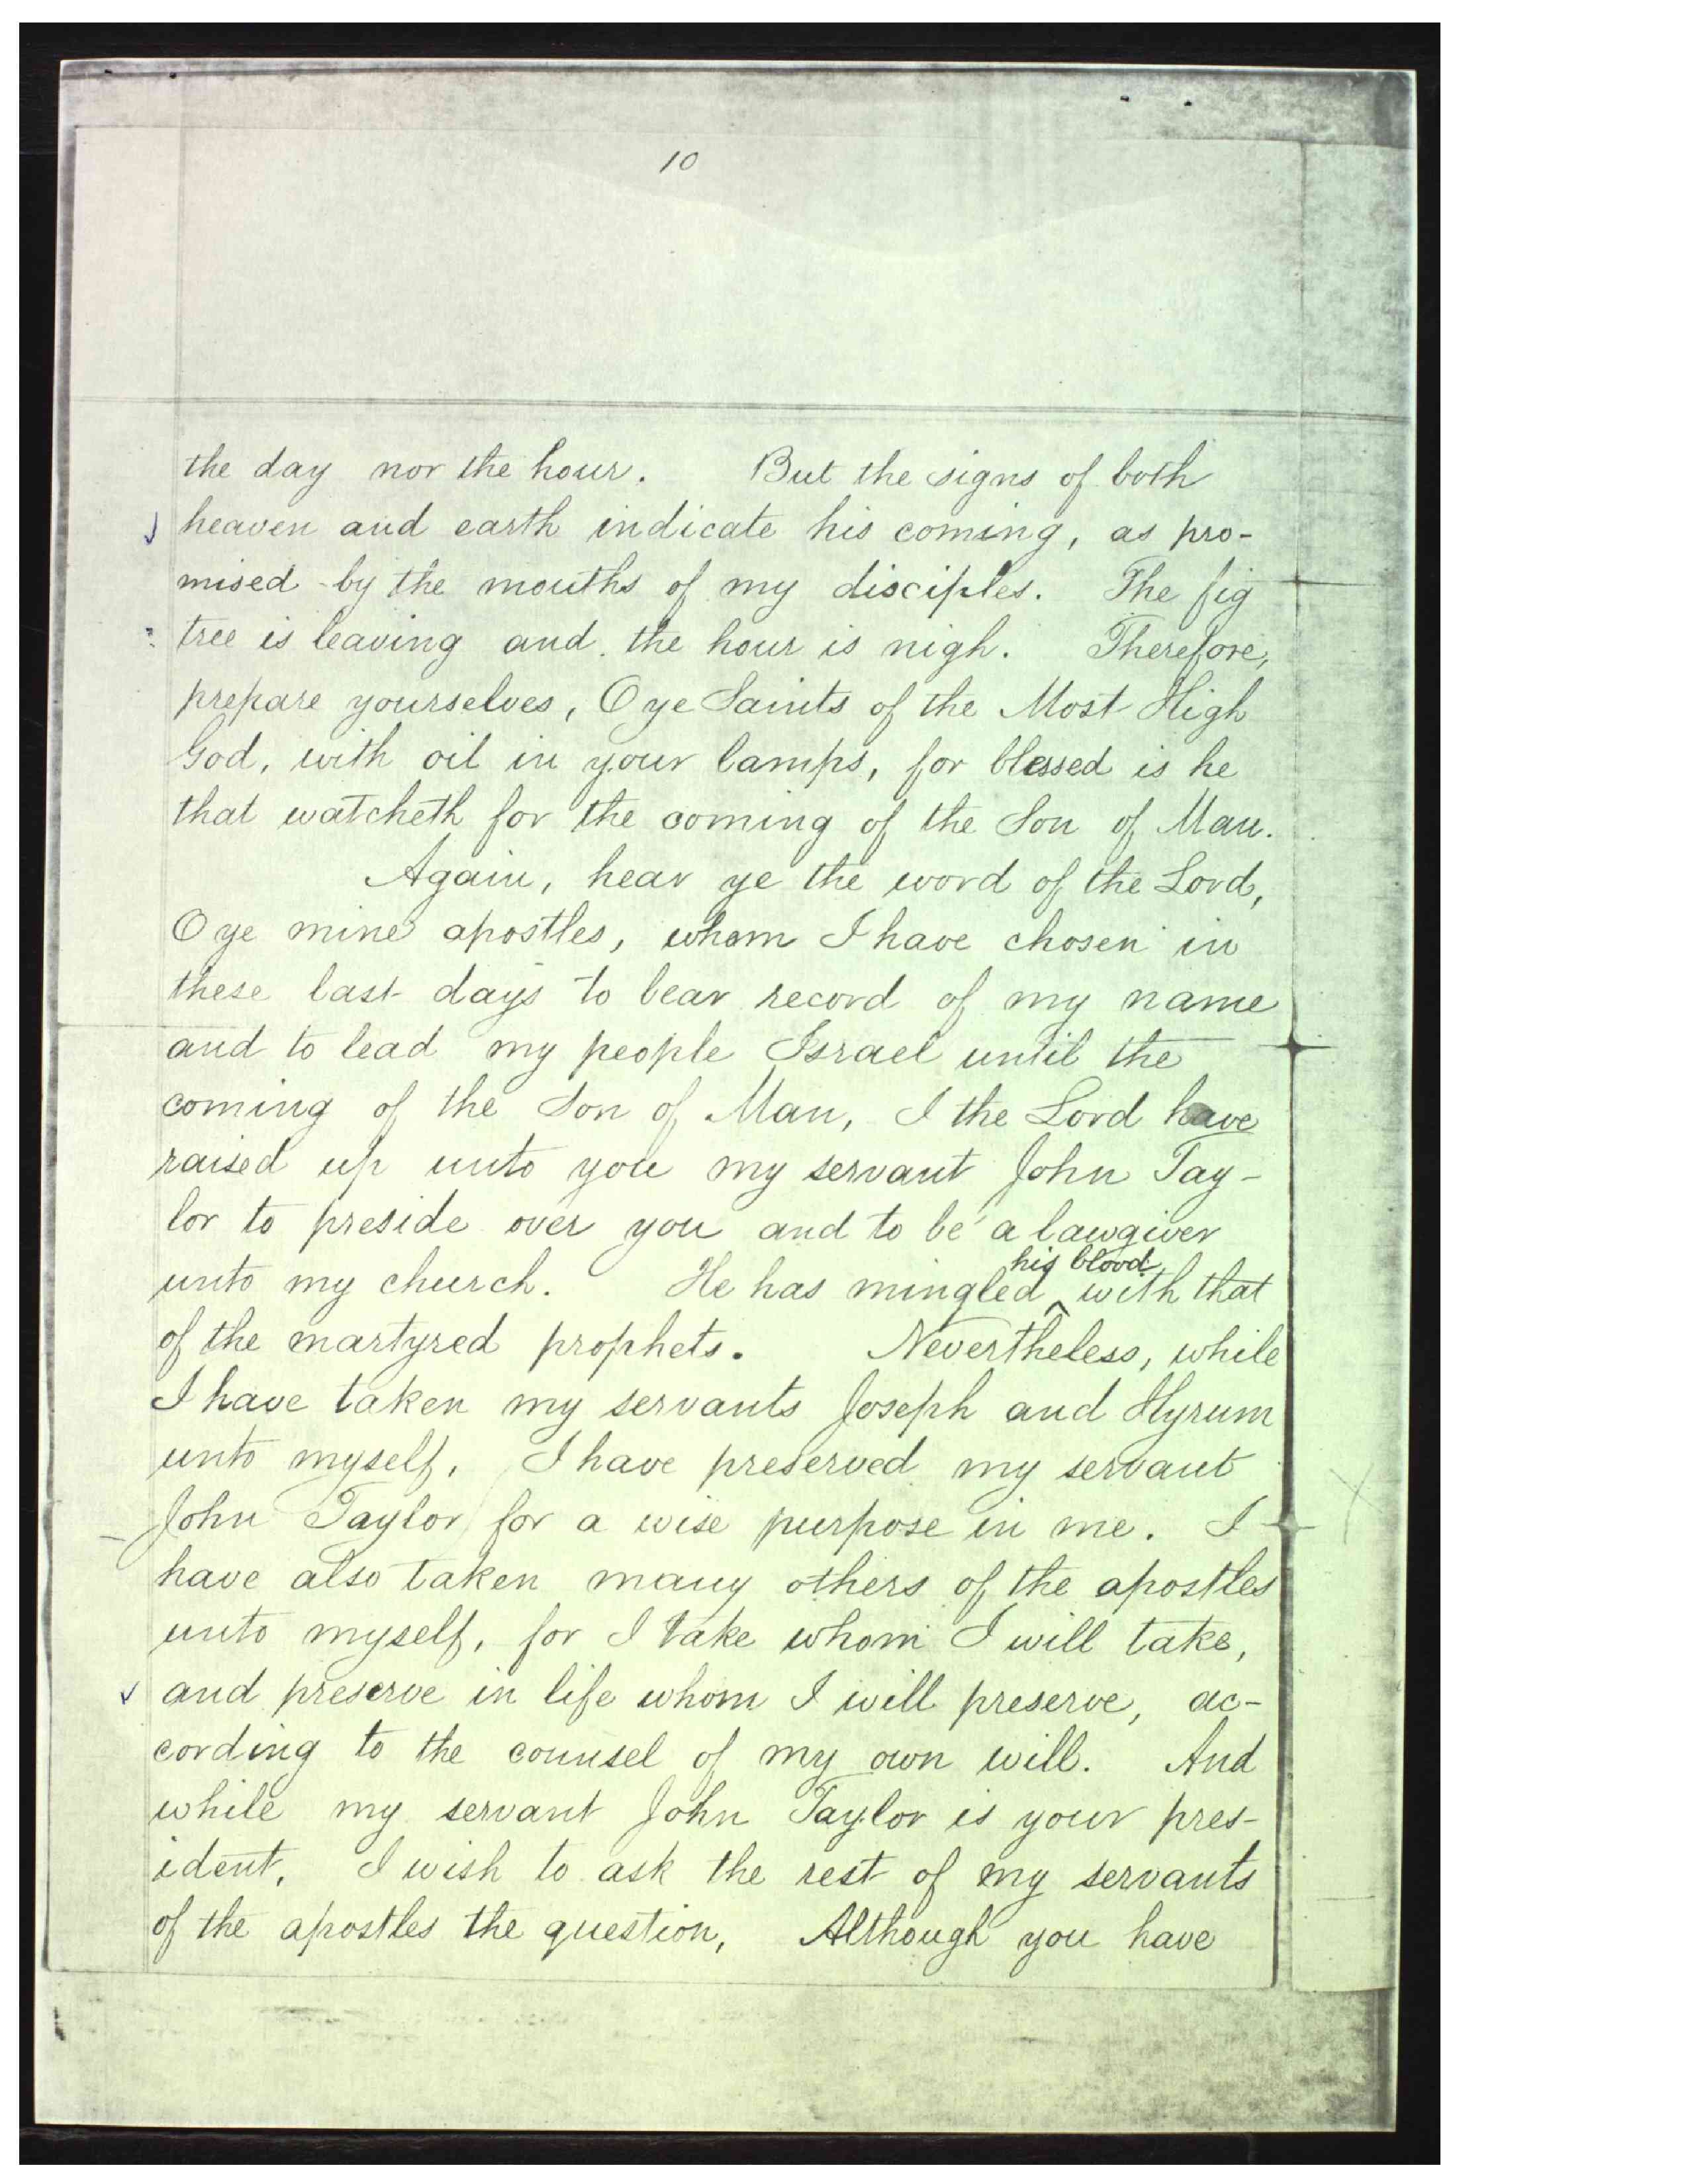 10
the day nor the hour. But the signs of both
heaven and earth indicate his coming, as pro-
mised by the mouths of my disciples. The fig
tree is leaving and the hour is nigh. Therefore,
prepare yourselves, O ye Saints of the Most High
God, with oil in your lamps, for blessed is he
that watcheth for the coming of the Son of Man.
Again, hear ye the word of the Lord,
O ye mine apostles, whom I have chosen in
these last days to bear record of my name
and to lead my people Israel until the
coming of the Son of Man, I the Lord have
raised up unto you my servant John Tay-
lor to preside over you and to be a lawgiver
his blood
unto my church. He has mingled ^ with that
of the martyred prophets. Nevertheless, while
I have taken my servants Joseph and Hyrum
unto myself, I have preserved my servant
John Taylor for a wise purpose in me. I
have also taken many others of the apostles
unto myself, for I take whom I will take,
and preserve in life whom I will preserve, ac-
cording to the counsel of my own will. And
while my servant John Taylor is your pres-
ident, I wish to ask the rest of my servants
of the apostles the question, Although you have